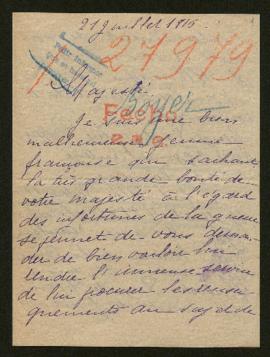 21 Juillet 1916.
27979
Majesté
Boyer
Fecho
Je suis une bien
malheureuse femme
française qui sachant
la très grande bonté de
votre majesté à l'égard
des infortunes de la guerre
se permet de vous deman
der de bien vouloir lui
rendre l'immense service
de lui procurer les rensei
gnements au sujet de